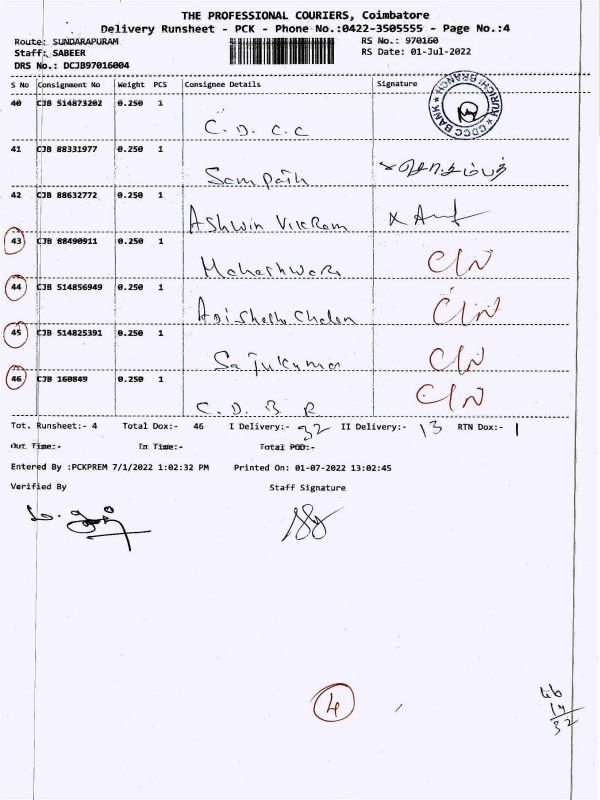 THE PROFESSIONAL COURIERS, Coimbatore
Delivery Runsheet - PCK - Phone No.:0422-3505555 - Page No.:4
Route: SUNDARAPURAM RS No.: 970160
Staff: SABEER RS Date: 01-Jul-2022
DRS No.: DCJB97016004
S No Consignment No Weight PCS Consignee Details Signature
40 CJB 514873202 0.250 1
C. D. C. C
CDCC BANK KURICHI BRANCH
41 CJB 88331977 0.250 1
Sampath சம்பத்
42 CJB 88632772 0.250 1
Ashwin Vikram
43 CJB 88490911 0.250 1
Maheshwari C/N
44 CJB 514856949 0.250 1
C/N
45 CJB 514825391 0.250 1
C/N
46 CJB 160849 0.250 1
C. D. B. R C/N
Tot. Runsheet:- 4 Total Dox:- 46 I Delivery:- 32 II Delivery:- 13 RTN Dox:- 1
Out Time:- In Time:- Total POD:-
Entered By :PCKPREM 7/1/2022 1:02:32 PM Printed On: 01-07-2022 13:02:45
Verified By Staff Signature
4
46
14
32